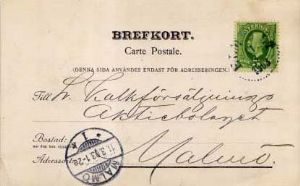 BREFKORT.
Carte Postale.
(DENNA SIDA ANVÄNDES ENDAST FÖR ADRESSERINGEN.)
Till Kalkförsäljnings
Aktiebolaget
Bostad:
Adressort: Malmö.
MALMÖ